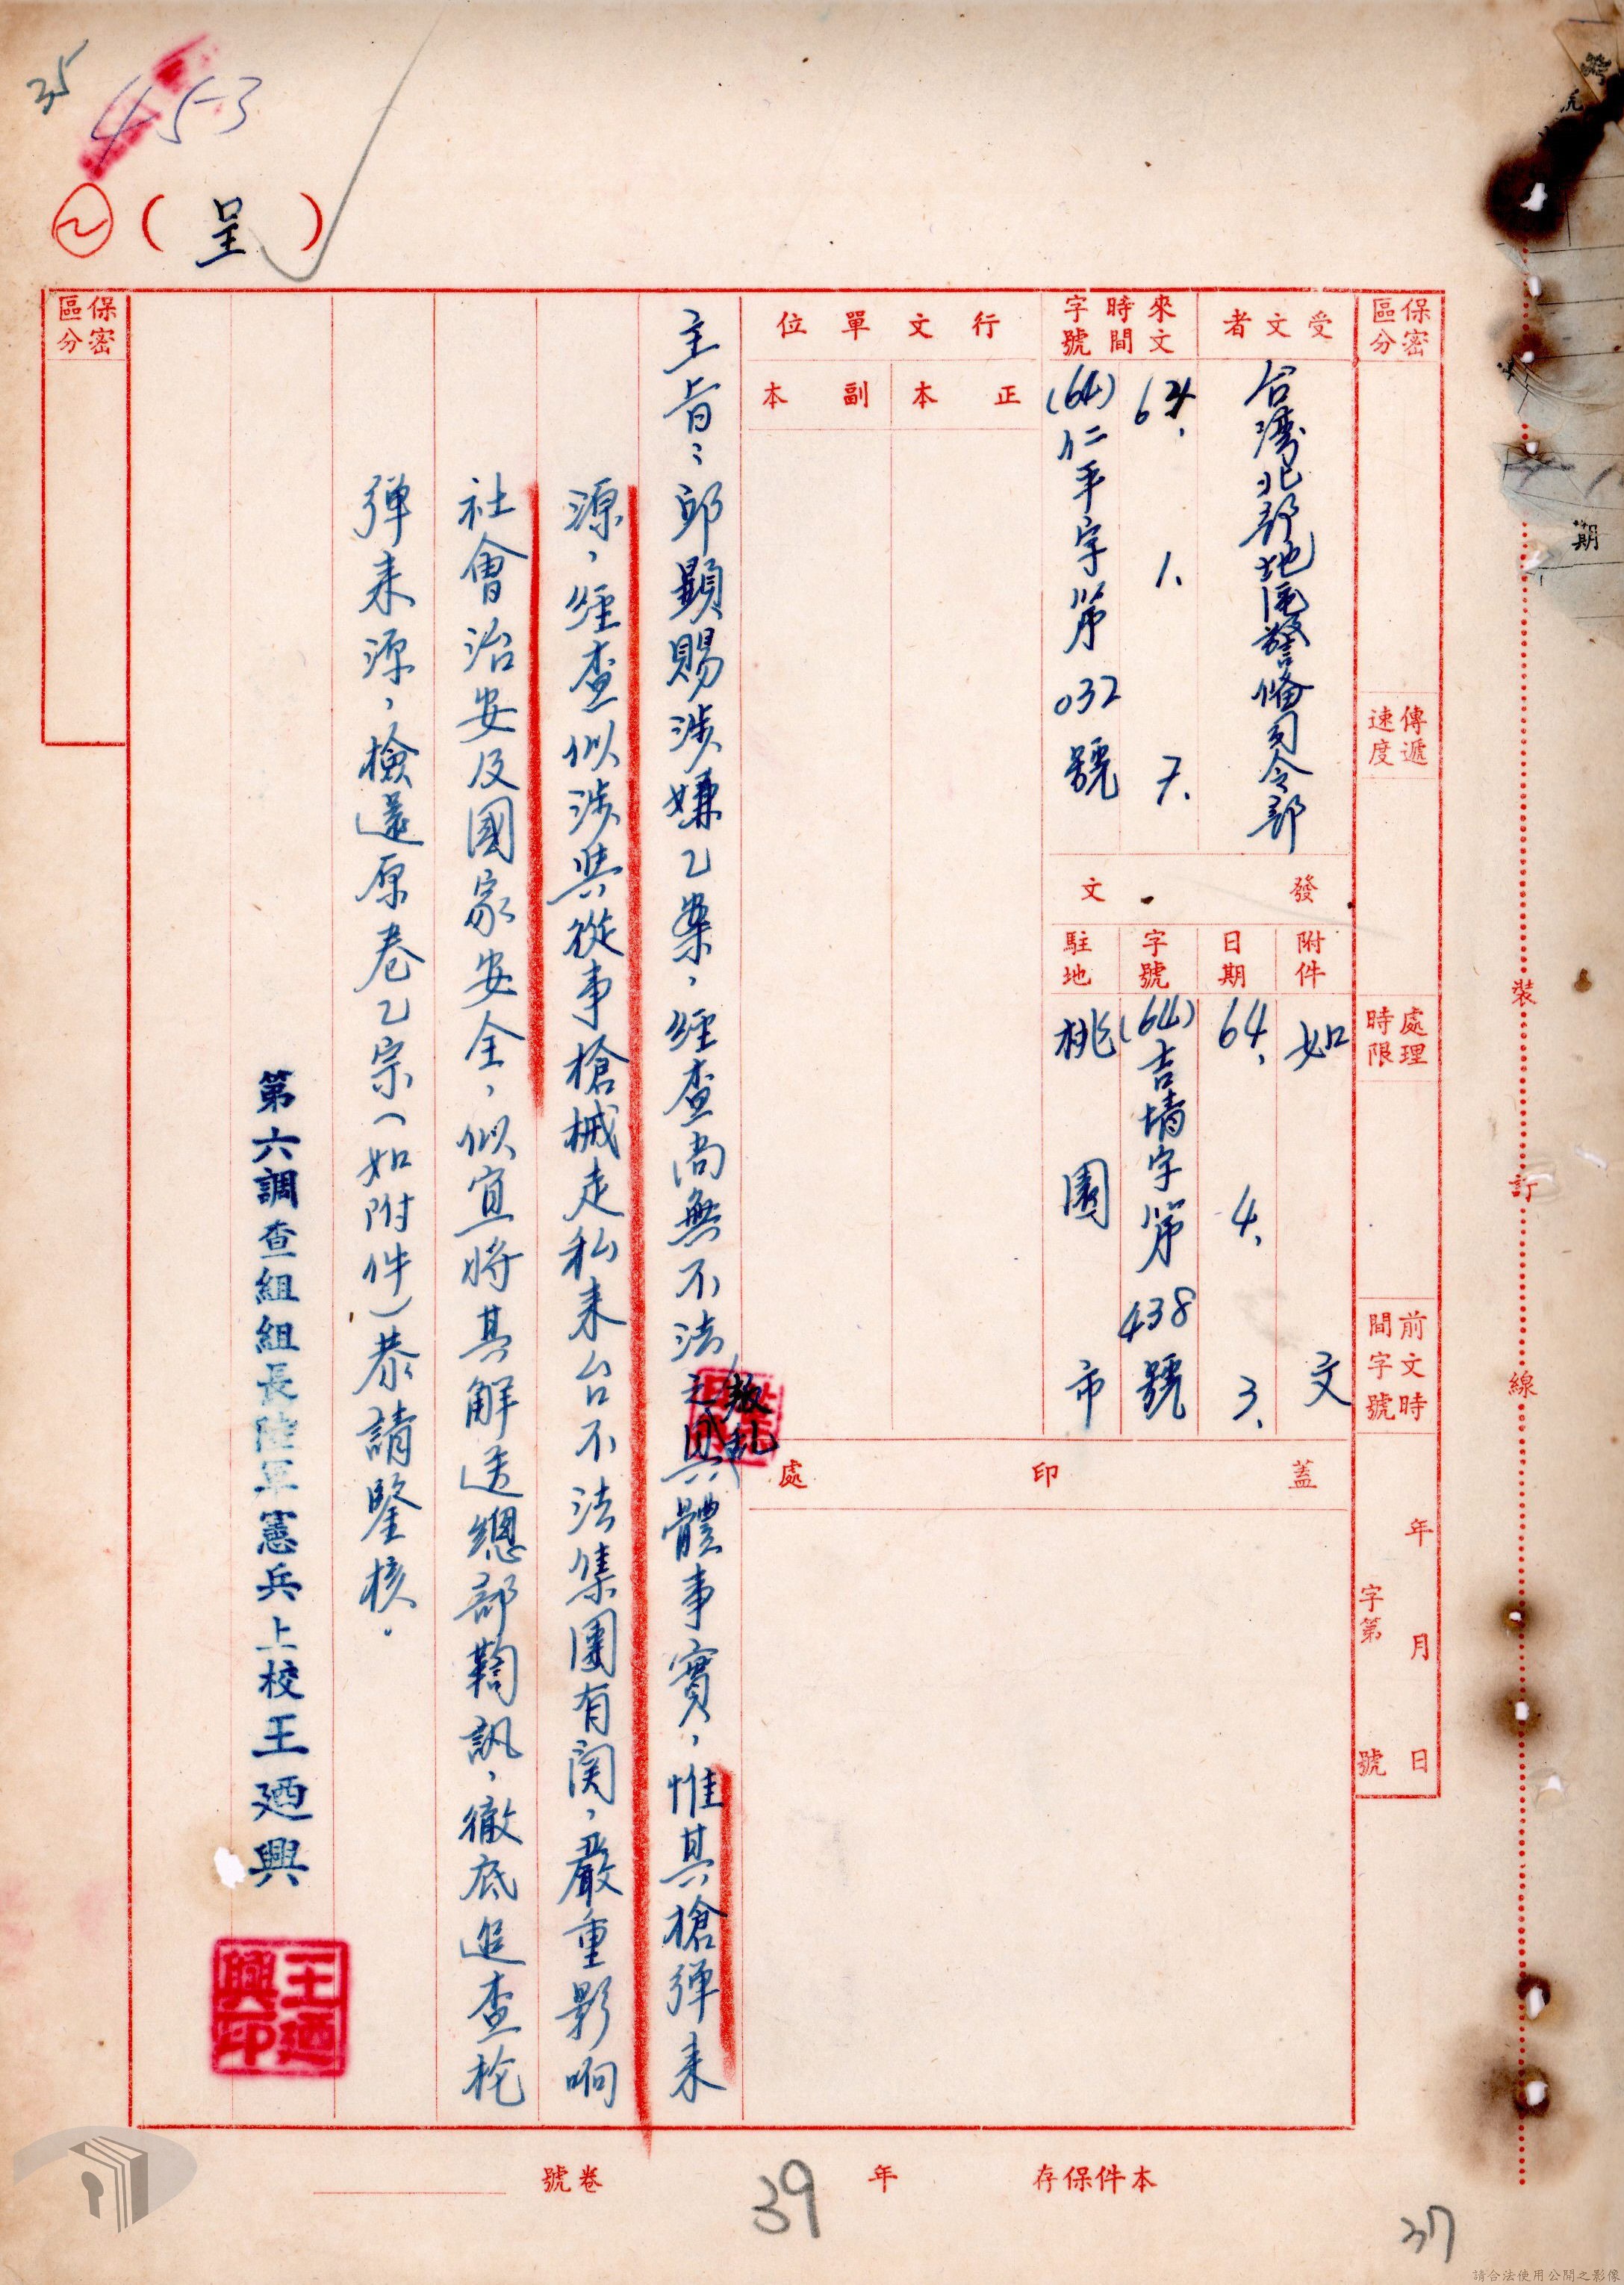 35
45-3
(呈)
保密區分
傳遞速度
處理時限
前文時間字號
年 月 日
字第 號
受文者
台灣北部地區警備司令部
來文時間字號
64. 1. 7.
(64)仁平字第032號
發文
附件
如文
日期
64. 4. 3.
字號
(64)吉靖字第438號
駐地
桃園市
行文單位
正本
副本
蓋印處
主旨:邱顯賜涉嫌乙案,經查尚無不法叛亂之具體事實,惟其槍彈来
源,經查似涉與從事槍械走私来台不法集團有関,嚴重影响
社會治安及國家安全,似宜將其解送總部鞫訊,徹底追查枪
弹来源,檢還原卷乙宗(如附件)恭請鑒核.
第六調查組組長陸軍憲兵上校王廼興
王廼興印
保密區分
裝 訂 線
期
本件保存 年
卷號
39
37
請合法使用公開之影像